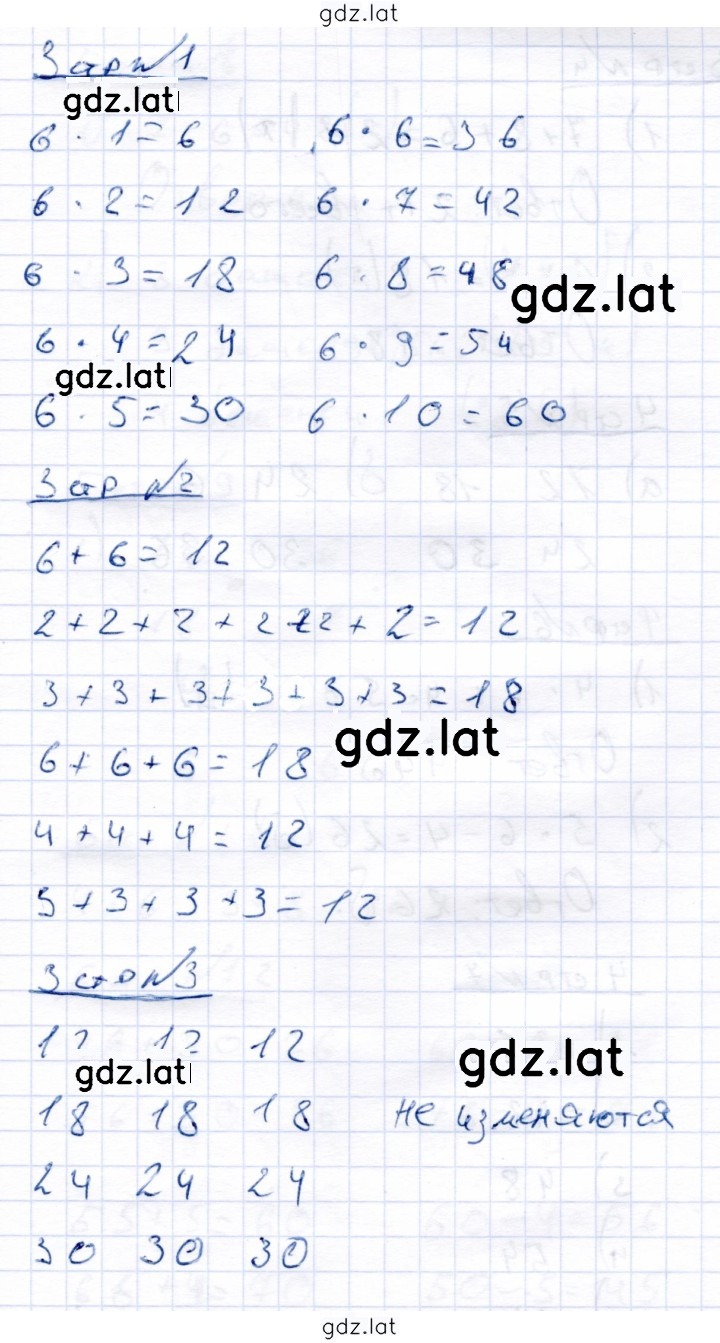 gdz.lat
3 стр №1
gdz.lat
6 · 1 = 6 6 · 6 = 36
6 · 2 = 12 6 · 7 = 42
6 · 3 = 18 6 · 8 = 48
gdz.lat
6 · 4 = 24 6 · 9 = 54
gdz.lat
6 · 5 = 30 6 · 10 = 60
3 стр №2
6 + 6 = 12
2 + 2 + 2 + 2 + 2 + 2 = 12
3 + 3 + 3 + 3 + 3 + 3 = 18
gdz.lat
6 + 6 + 6 = 18
4 + 4 + 4 = 12
3 + 3 + 3 + 3 = 12
3 стр №3
12 12 12
gdz.lat
gdz.lat
18 18 18 не изменяются
24 24 24
30 30 30
gdz.lat